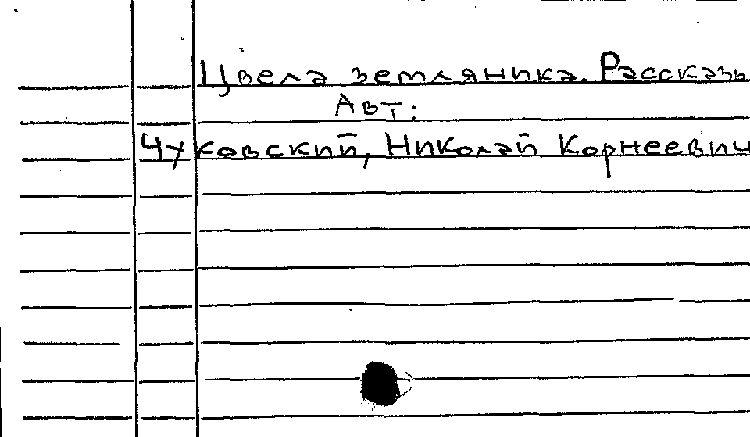 Цвела земляника. Рассказы
Авт:
Чуковский, Николай Корнеевич